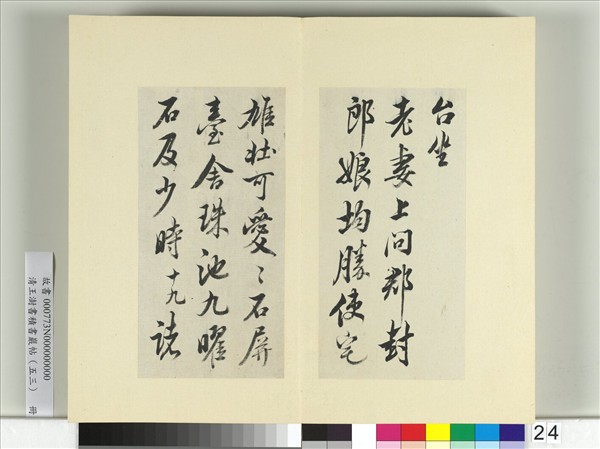 台坐
老妻上问郑封
郎娘均勝使宅
雄壮可愛〻石屏
臺舍珠池九曜
石及少時十九諸
故書 000773N000000000
清王澍書積書巖帖(五三) 冊
24